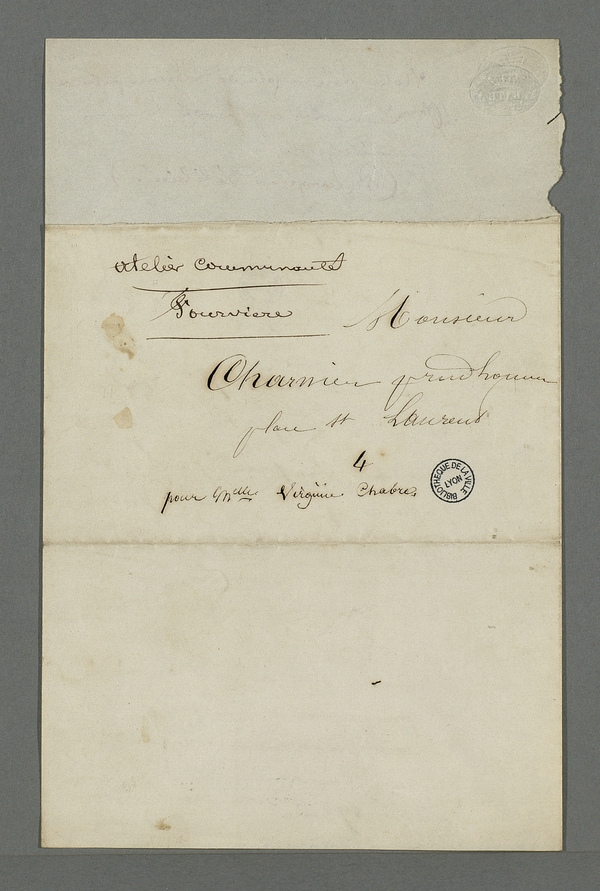 atelier communauté
Fourviere
Monsieur
Charnier prudhomme
place St Laurent
4
pour Mlle Virginie Chabre
BIBLIOTHEQUE DE LA VILLE
LYON